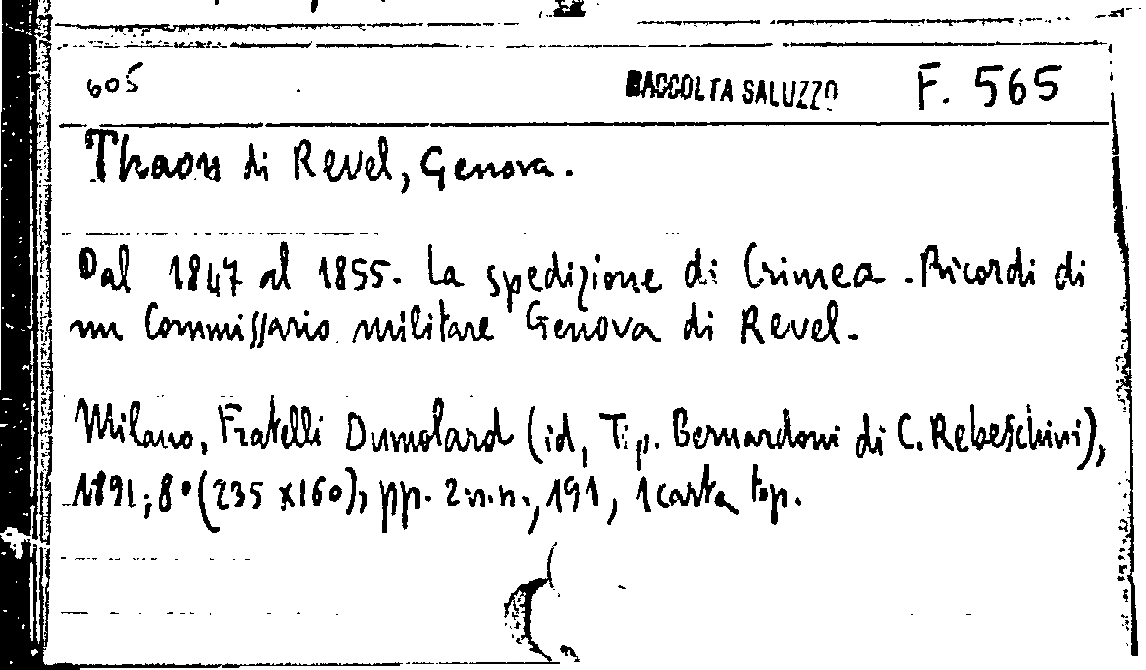 605 RACCOLTA SALUZZO F. 565
Thaon di Revel, Genova.
Dal 1847 al 1855. La spedizione di Crimea. Ricordi di
un Commissario militare Genova di Revel.
Milano, Fratelli Dumolard (id, Tip. Bernardoni di C. Rebeschini),
1891; 8° (235 x160), pp. 2 n.n., 191, 1 carta top.